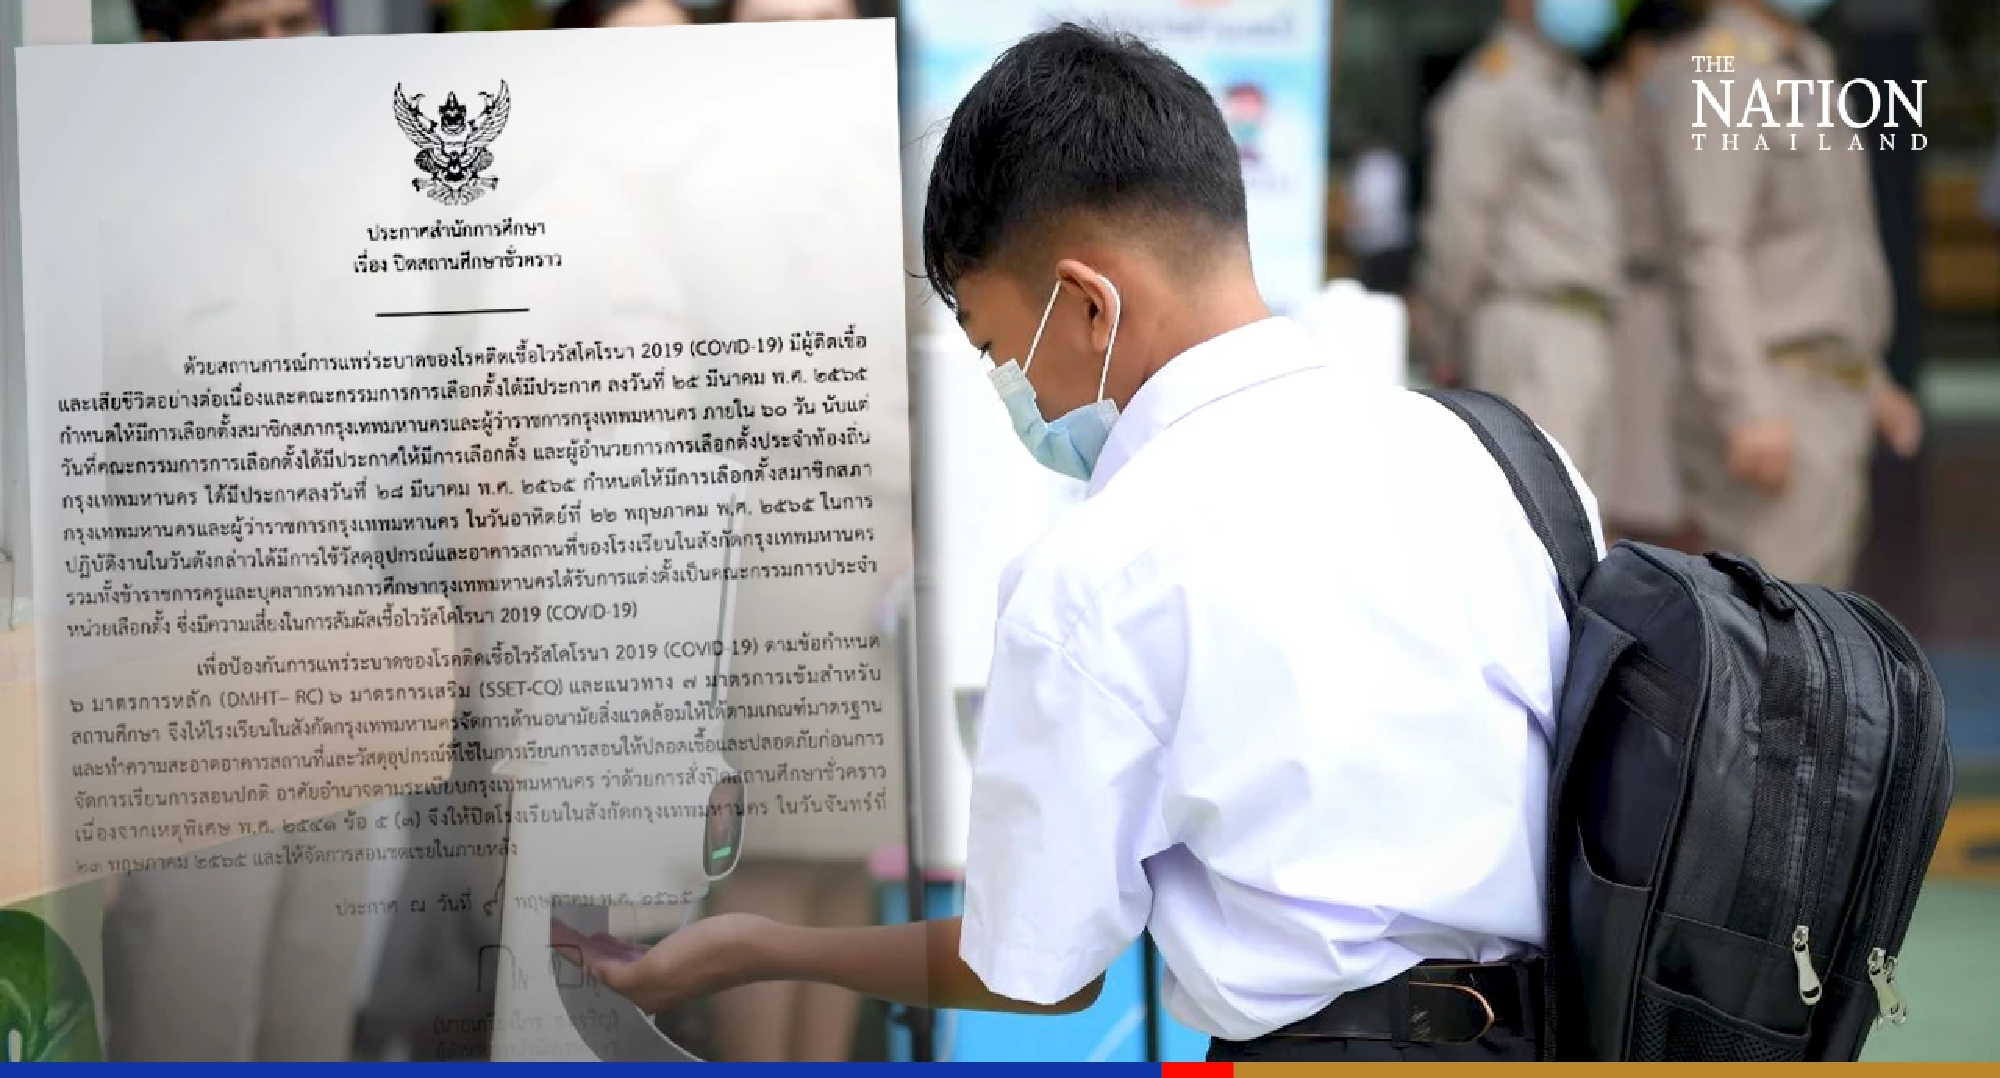 ประกาศสำนักการศึกษา
เรื่อง ปิดสถานศึกษาชั่วคราว
ด้วยสถานการณ์การแพร่ระบาดของโรคติดเชื้อไวรัสโคโรนา 2019 (COVID-19) มีผู้ติดเชื้อ
และเสียชีวิตอย่างต่อเนื่องและคณะกรรมการการเลือกตั้งได้มีประกาศ ลงวันที่ ๒๕ มีนาคม พ.ศ. ๒๕๖๕
กำหนดให้มีการเลือกตั้งสมาชิกสภากรุงเทพมหานครและผู้ว่าราชการกรุงเทพมหานคร ภายใน ๖๐ วัน นับแต่
วันที่คณะกรรมการการเลือกตั้งได้มีประกาศให้มีการเลือกตั้ง และผู้อำนวยการการเลือกตั้งประจำท้องถิ่น
กรุงเทพมหานคร ได้มีประกาศลงวันที่ ๒๘ มีนาคม พ.ศ. ๒๕๖๕ กำหนดให้มีการเลือกตั้งสมาชิกสภา
กรุงเทพมหานครและผู้ว่าราชการกรุงเทพมหานคร ในวันอาทิตย์ที่ ๒๒ พฤษภาคม พ.ศ. ๒๕๖๕ ในการ
ปฏิบัติงานในวันดังกล่าวได้มีการใช้วัสดุอุปกรณ์และอาคารสถานที่ของโรงเรียนในสังกัดกรุงเทพมหานคร
รวมทั้งข้าราชการครูและบุคลากรทางการศึกษากรุงเทพมหานครได้รับการแต่งตั้งเป็นคณะกรรมการประจำ
หน่วยเลือกตั้ง ซึ่งมีความเสี่ยงในการสัมผัสเชื้อไวรัสโคโรนา 2019 (COVID-19)
เพื่อป้องกันการแพร่ระบาดของโรคติดเชื้อไวรัสโคโรนา 2019 (COVID-19) ตามข้อกำหนด
๖ มาตรการหลัก (DMHT– RC) ๖ มาตรการเสริม (SSET-CQ) และแนวทาง ๗ มาตรการเข้มสำหรับ
สถานศึกษา จึงให้โรงเรียนในสังกัดกรุงเทพมหานครจัดการด้านอนามัยสิ่งแวดล้อมให้ได้ตามเกณฑ์มาตรฐาน
และทำความสะอาดอาคารสถานที่และวัสดุอุปกรณ์ที่ใช้ในการเรียนการสอนให้ปลอดเชื้อและปลอดภัยก่อนการ
จัดการเรียนการสอนปกติ อาศัยอำนาจตามระเบียบกรุงเทพมหานคร ว่าด้วยการสั่งปิดสถานศึกษาชั่วคราว
เนื่องจากเหตุพิเศษ พ.ศ. ๒๕๔๑ ข้อ ๕ (๓) จึงให้ปิดโรงเรียนในสังกัดกรุงเทพมหานคร ในวันจันทร์ที่
๒๓ พฤษภาคม ๒๕๖๕ และให้จัดการสอนชดเชยในภายหลัง
ประกาศ ณ วันที่ ๙ พฤษภาคม พ.ศ. ๒๕๖๕
THE
NATION
THAILAND